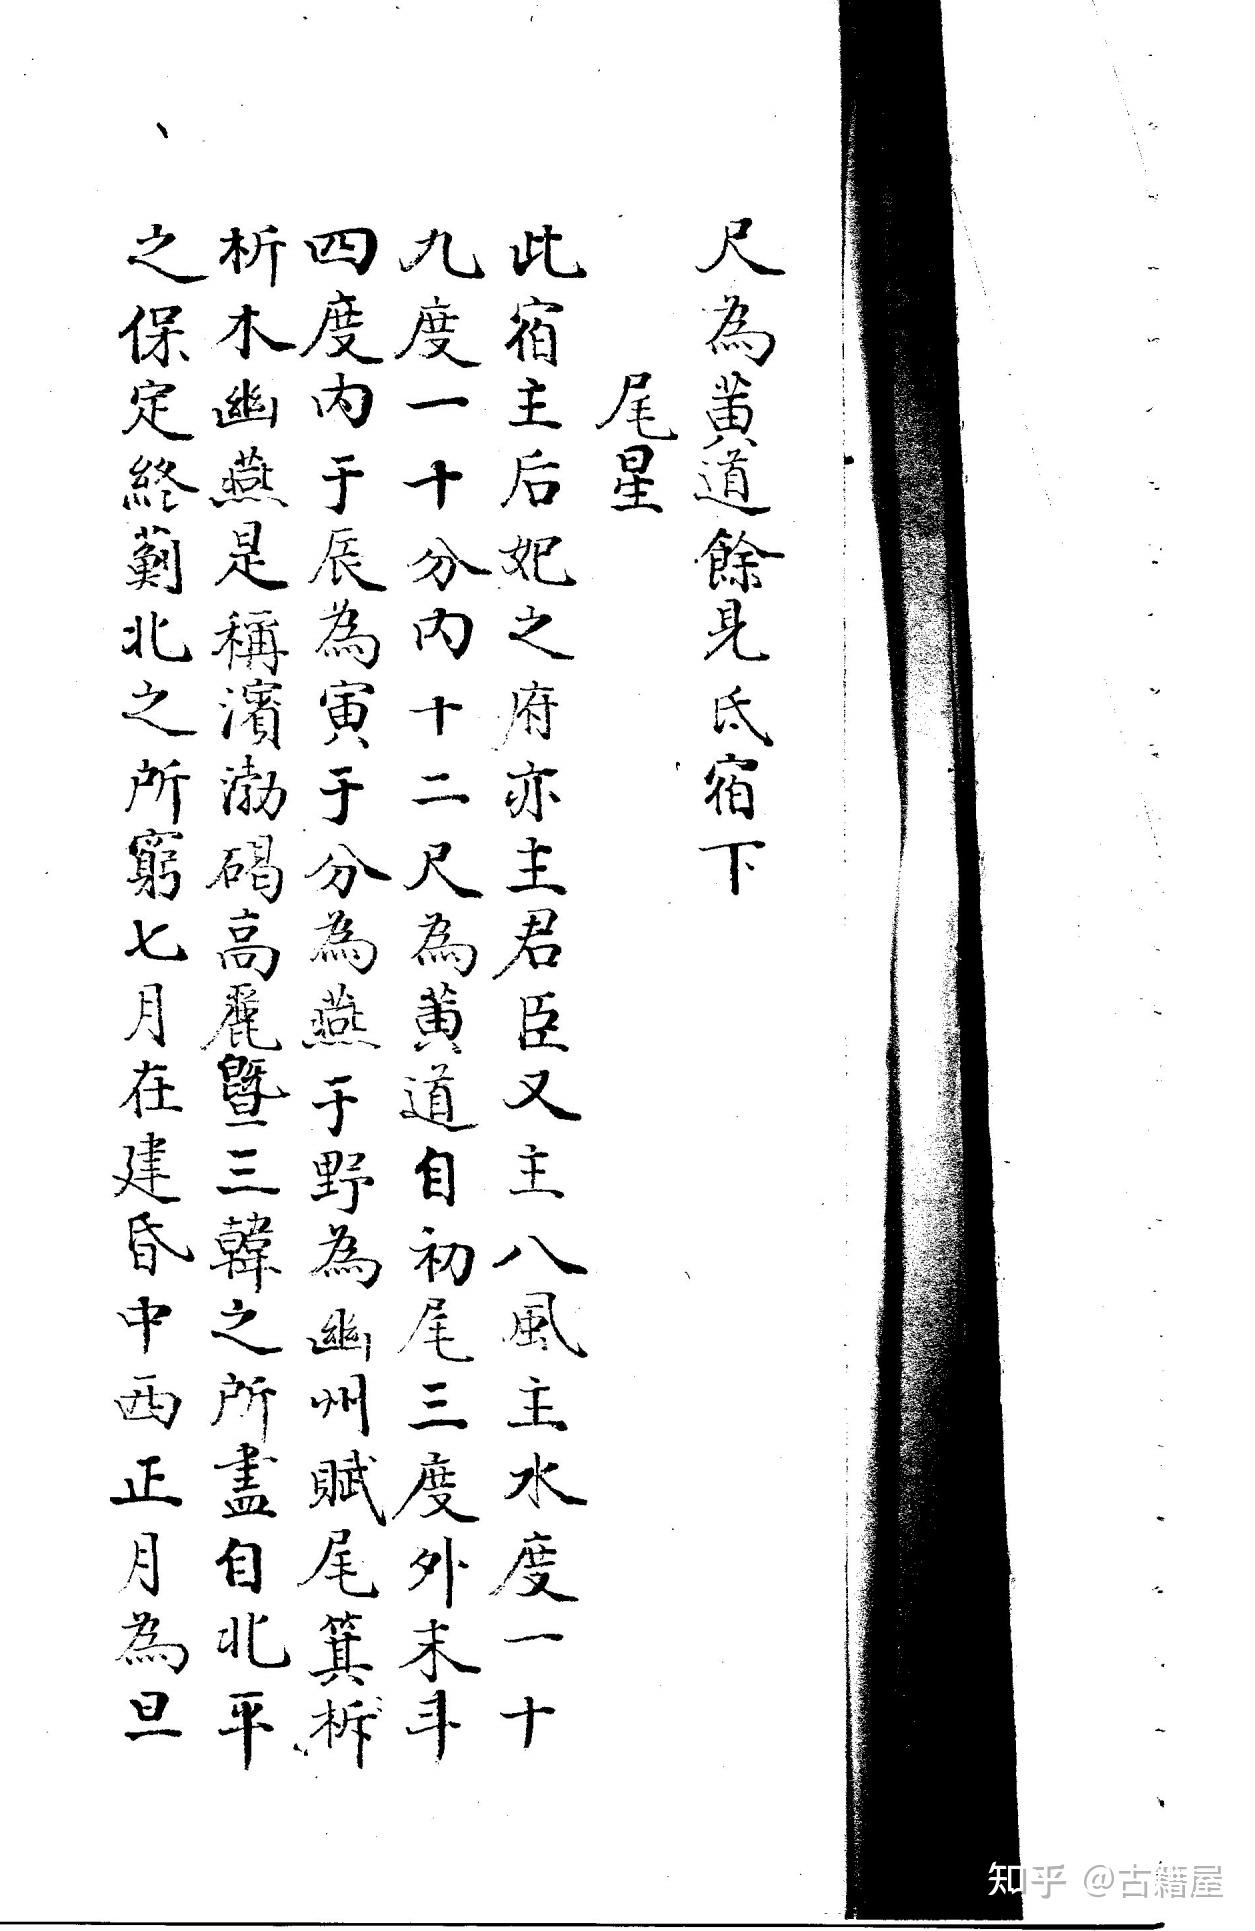 尺為黄道餘見氐宿下
尾星
此宿主后妃之府亦主君臣又主八風主水度一十
九度一十分内十二尺為黄道自初尾三度外末斗
四度内于辰為寅于分為燕于野為幽州賦尾箕柝
析木幽燕是稱濱渤碣高麗暨三韓之所盡自北平
之保定終薊北之所窮七月在建昏中西正月為旦
知乎 @古籍屋